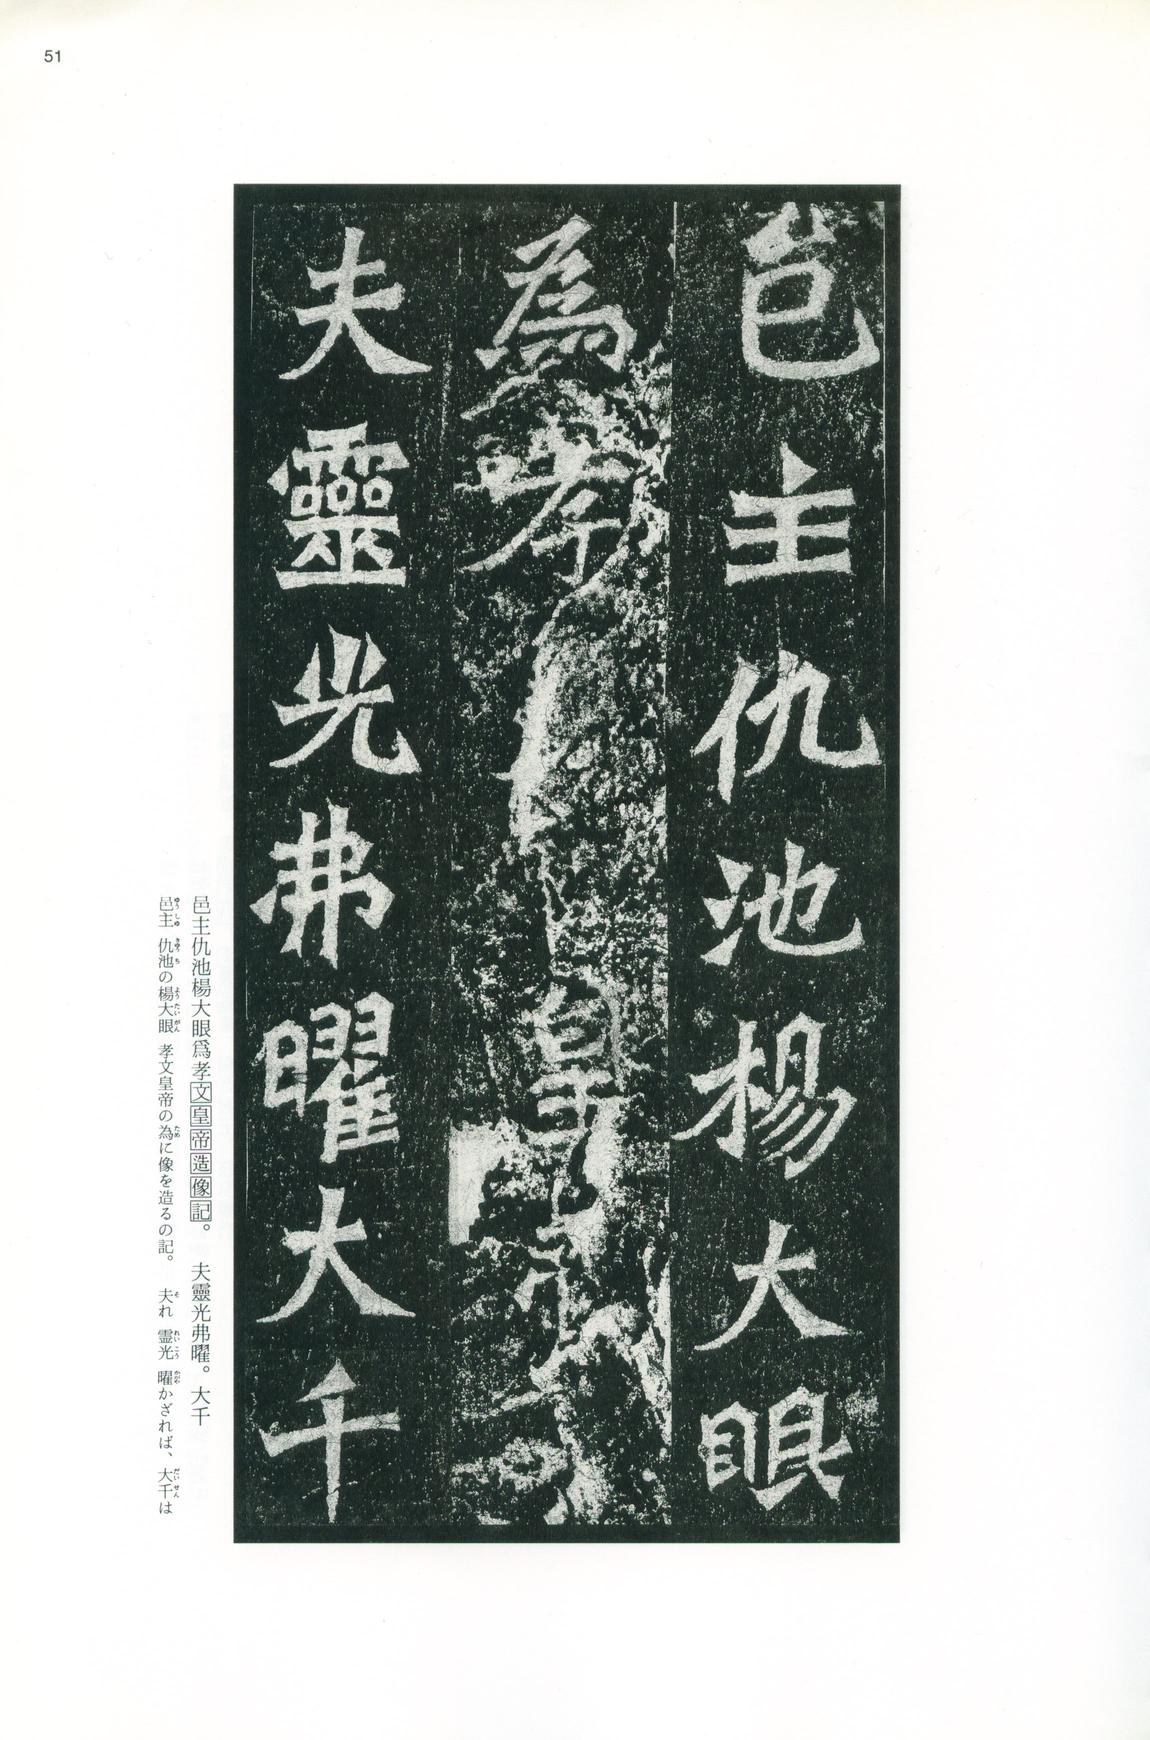 51
邑主仇池楊大眼
為孝
皇帝
夫靈光弗曜大千
邑主仇池楊大眼爲孝文皇帝造像記。 夫靈光弗曜。大千
邑主 仇池の楊大眼 孝文皇帝の為に像を造るの記。 夫れ 霊光 曜かざれば、大千は